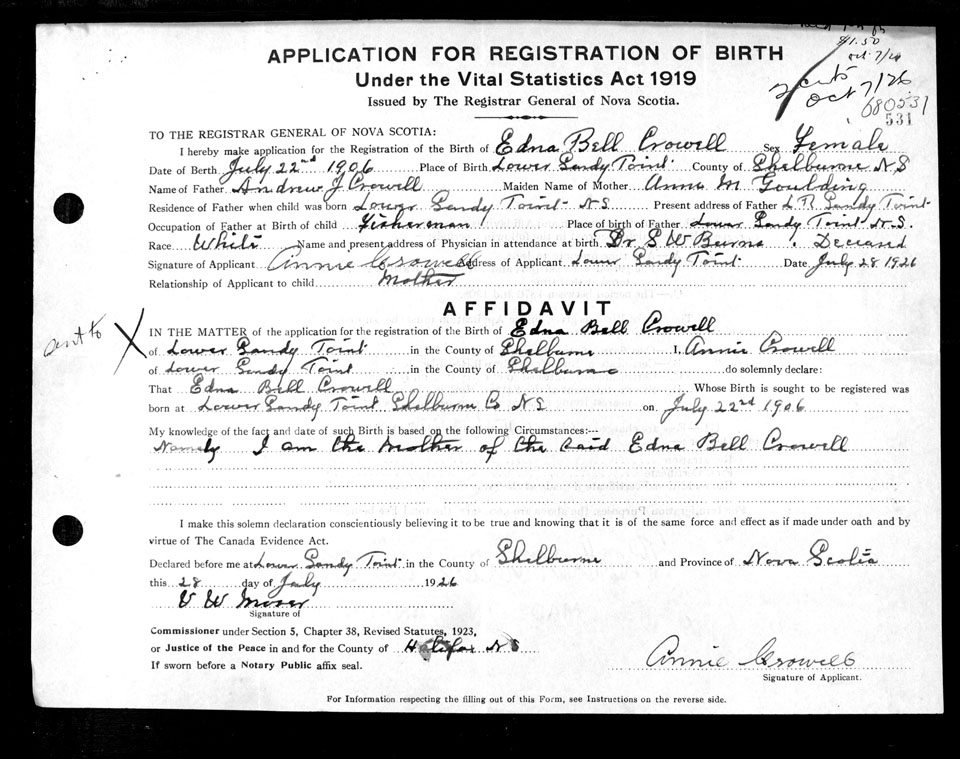 $1.50
Oct 7/26
2 certs
Oct 7/26
680531
531
APPLICATION FOR REGISTRATION OF BIRTH
Under the Vital Statistics Act 1919
Issued by The Registrar General of Nova Scotia.
TO THE REGISTRAR GENERAL OF NOVA SCOTIA:
I hereby make application for the Registration of the Birth of Edna Bell Crowell Sex Female
Date of Birth July 22nd 1906 Place of Birth Lower Sandy Point County of Shelburne N S
Name of Father Andrew J Crowell Maiden Name of Mother Annie M Goulding
Residence of Father when child was born Lower Sandy Point N S Present address of Father L R Sandy Point
Occupation of Father at Birth of child Fisherman Place of birth of Father Lower Sandy Point N.S.
Race White Name and present address of Physician in attendance at birth Dr S W Burns. Deceased
Signature of Applicant Annie Crowell Address of Applicant Lower Sandy Point Date July 28 1926
Relationship of Applicant to child Mother
AFFIDAVIT
IN THE MATTER of the application for the registration of the Birth of Edna Bell Crowell
of Lower Sandy Point in the County of Shelburne I, Annie Crowell
of Lower Sandy Point in the County of Shelburne do solemnly declare:
That Edna Bell Crowell Whose Birth is sought to be registered was
born at Lower Sandy Point Shelburne Co N S on July 22nd 1906
My knowledge of the fact and date of such Birth is based on the following Circumstances:--
Namely I am the Mother of the said Edna Bell Crowell
I make this solemn declaration conscientiously believing it to be true and knowing that it is of the same force and effect as if made under oath and by
virtue of The Canada Evidence Act.
Declared before me at Lower Sandy Point in the County of Shelburne and Province of Nova Scotia
this 28 day of July 1926
V W Moser
Signature of
Commissioner under Section 5, Chapter 38, Revised Statutes, 1923,
or Justice of the Peace in and for the County of Halifax N S
If sworn before a Notary Public affix seal.
Annie Crowell
Signature of Applicant.
For Information respecting the filling out of this Form, see Instructions on the reverse side.